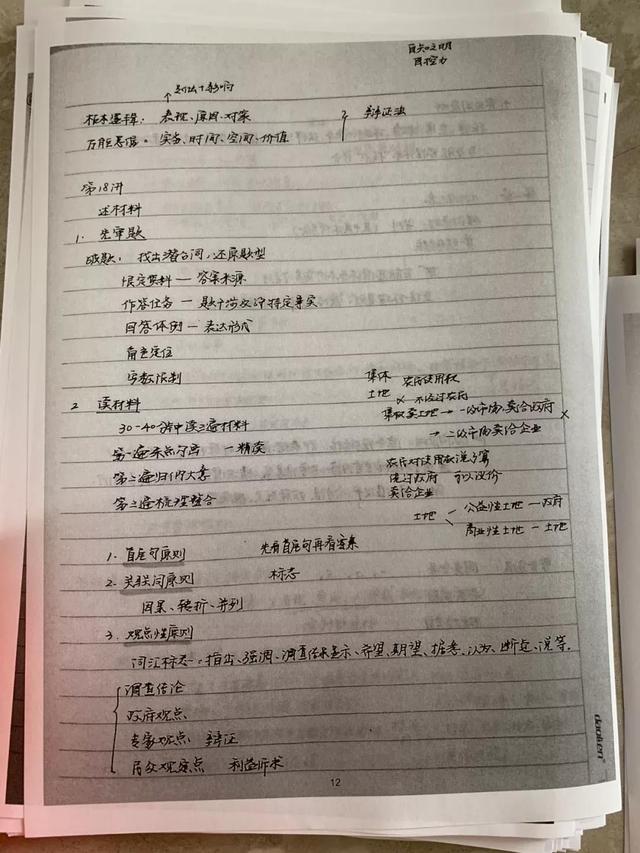 自知之明
自控力
↑ 对比+影响
根本逻辑：表现、原因、对策
2 辩证法
万能思维：实务、时间、空间、价值
第18讲
述材料
1. 先审题
破题：找出潜台词，还原题型
限定资料 — 答案来源
作答任务 — 题干涉及评特定事实
回答体例 — 表达形式
角色定位
字数限制
集体 农民使用权
土地 × 不经过农府
2 读材料
集体卖土地 → 一级市场，卖给政府 ×
30-40分钟读三遍材料
→ 二级市场卖给企业
第一遍来点勾画 — 精读
农民对使用权说了算
第二遍归纳大意
绕过政府 可以议价
第三遍梳理整合
卖给企业
土地 < 公益性土地 — 政府
商业性土地 — 土地
1. 首尾句原则 先看首尾句再看答案
2. 关联词原则 标志
因果、转折、并列
3. 观点性原则
词汇标志：指出、强调、调查结果显示、希望、期望、据悉、认为、断定、说等.
调查结论
政府观点
专家观点 辩证
民众观点 利益诉求
12
daolien